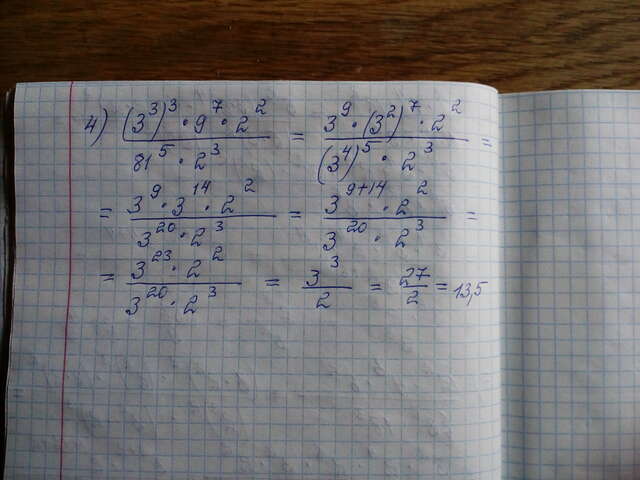 4) (3^3)^3 · 9^7 · 2^2 / 81^5 · 2^3 = 3^9 · (3^2)^7 · 2^2 / (3^4)^5 · 2^3 =
= 3^9 · 3^14 · 2^2 / 3^20 · 2^3 = 3^9+14 · 2^2 / 3^20 · 2^3 =
= 3^23 · 2^2 / 3^20 · 2^3 = 3^3 / 2 = 27 / 2 = 13,5